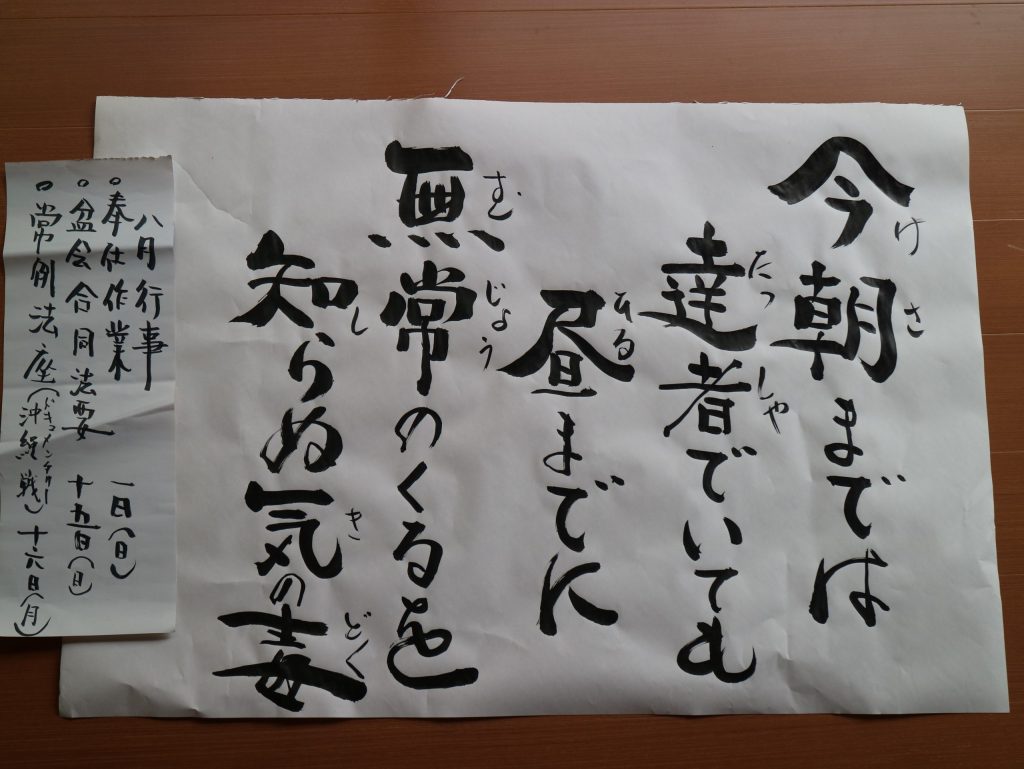 けさ
今朝までは
たっしゃ
達者でいても
ひる
昼までに
むじょう
無常のくるを
し き どく
知らぬ気の毒
八月行事
○奉仕作業 一日(日)
○盆会合同法要 十五日(日)
ドキュメンタリー
○常例法座(沖縄戦)十六日(月)